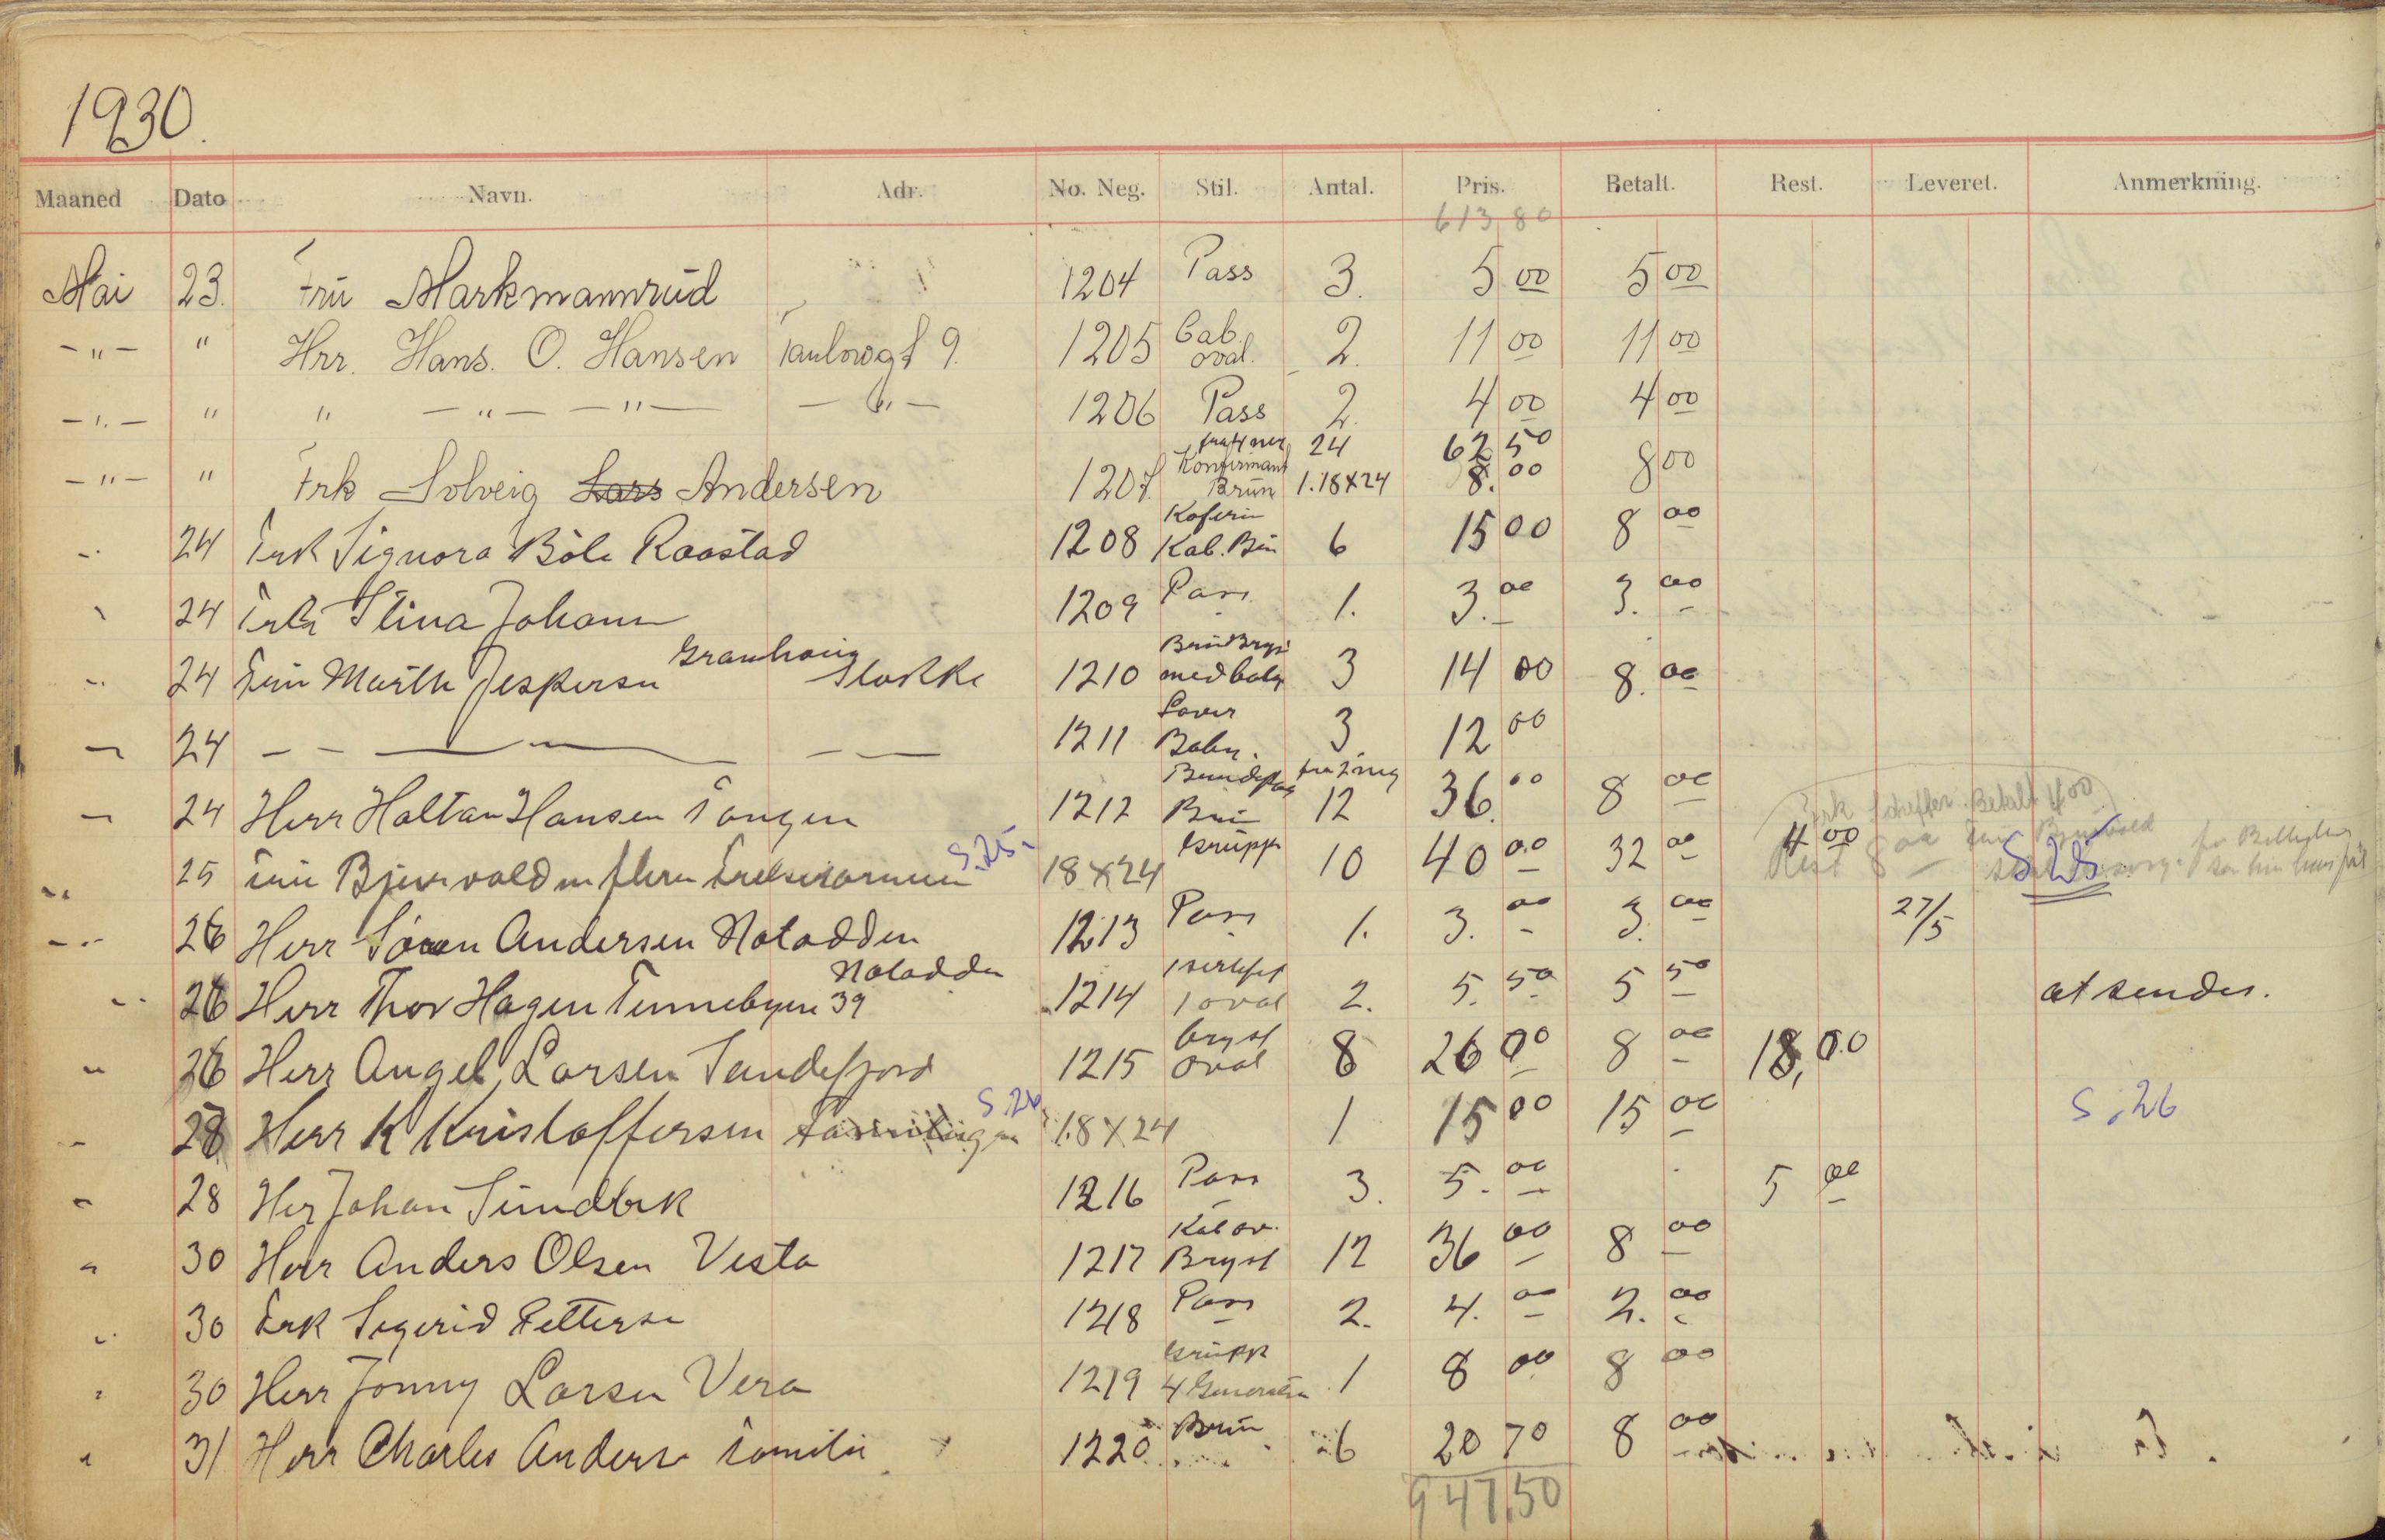 1930.
Maaned Dato Navn. Adr. No. Neg. Stil. Antal. Pris. Betalt. Rest. Leveret. Anmerkning.
613,80
Mai 23. Fru Markmannrud 1204 Pass 3. 5 00 5 00
-"- " Hrr. Hans. O. Hansen 9. 1205 Cab. oval. 2. 11 00 11 00
-"- " " -"- -"- -"- 1206 Pass 2. 4 00 4 00
24 62 50
-"- " Frk Solveig Lars Andersen 1207. Konfirmant Brun 1.18x24 8.00 8 00
24 Frk Signora Böle Raastad 1208 Kab. 6 15 00 8 00
24 Frk Stina Johann 1209 Pass 1. 3.00 3.00
24 Fru Marthe Jespersen Stokke 1210 med baby 3 14 00 8.00
24 1211 Baby. 3 12 00
24 Herr Haltan Hansen Tangen 1212 12 36.00 8 00
S.25.
25 Fru Bjervald m flere 18x24 Grupp 10 40 00 32 00 4 00 S 25.
26 Herr Søren Andersen Notodden 1213 Pass 1. 3.00 3.00 27/5
Notodden
26 Herr Thor Hagen Tinnebyen 39 1214 1 oval 2. 5.50 5 50 at sendes.
26 Herr Angel Larsen Sandefjord 1215 Bryst oval 8 26 00 8 00 18,00
S.26
28 Herr K Kristoffersen 18x24 1 15 00 15 00 S.26
28 Her Johan Sundbek 1216 Pass 3. 5.00 5 00
30 Herr Anders Olsen Vesta 1217 Kab ov. Bryst 12 36 00 8 00
30 Frk Sigerid Petterse 1218 Pass 2. 4.00 2.00
30 Herr Jonny Larsen Vera 1219 Grupp 4 1 8 00 8 00
31 Herr Charles Anderse Familie 1220 Brun 6 20 70 8 00
947,50